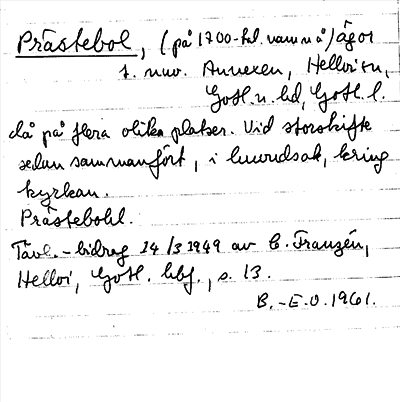 Prästebol, (på 1700-tal. namn å) ägor
t. nuv. Annexen, Hellvi sn,
Gotl. n. hd, Gotl. l.
då på flera olika platser. Vid storskifte
sedan sammanfört, i huvudsak, kring
kyrkan.
Prästebohl.
Tävl.-bidrag 24/3 1949 av C. Franzén,
Hellvi, Gotl. hbf., s. 13.
B.-E.O. 1961.